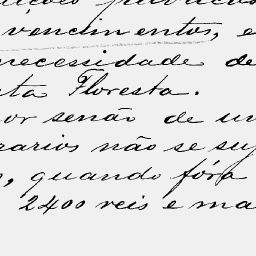 vencimentos, e
necessidade de
ta Floresta.
or senão de um
rarios não se suj
, quando fóra
2400 reis e ma